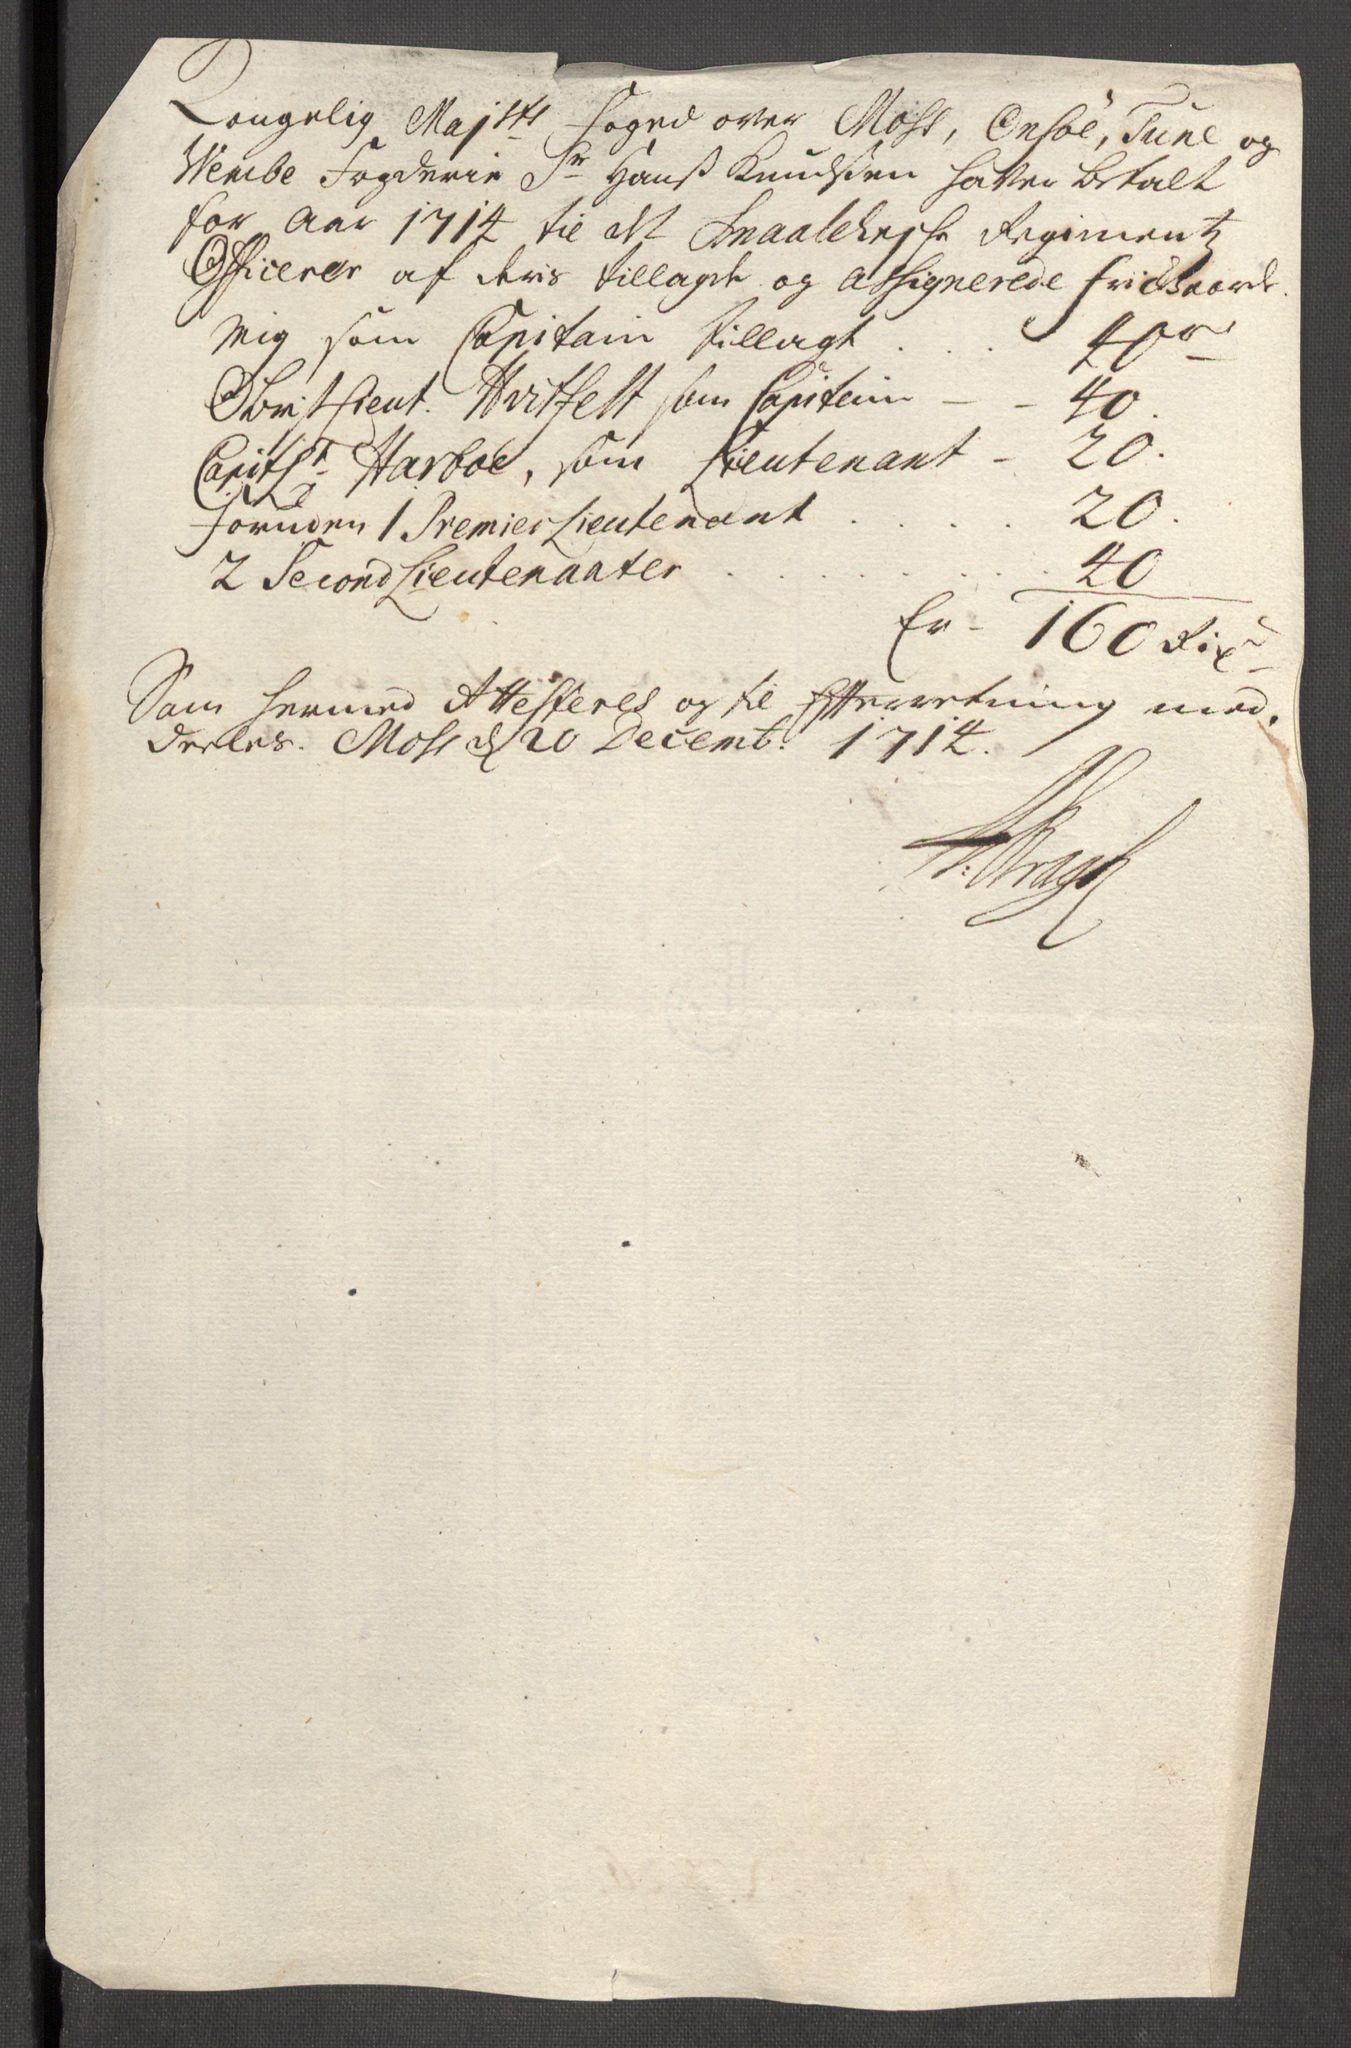 Kongelig Majsts Foged over Moss, Onsöe, Tune og
Wembe Fogderie Sr Hanß Knudssen haver betalt
for Aar 1714 til det Smaalehnsche Regimentz
Officerer af deris tillagde og assignerede frie gaarde.
Mig som Capitain tillagt . . . 40 rd
Obrist Lieut. Hvitfelt som Capitain - - 40.
Capit Lt Harboe, som Lieutenant - 20.
Foruden 1 Premier Lieutenant . . . . 20.
2 Second Lieutenanter . . . . . . . . 40
Er - 160 Rixdr
Som hermed Attesteres og til Efterretning med-
deeles. Moss d 20 Decembr: 1714.